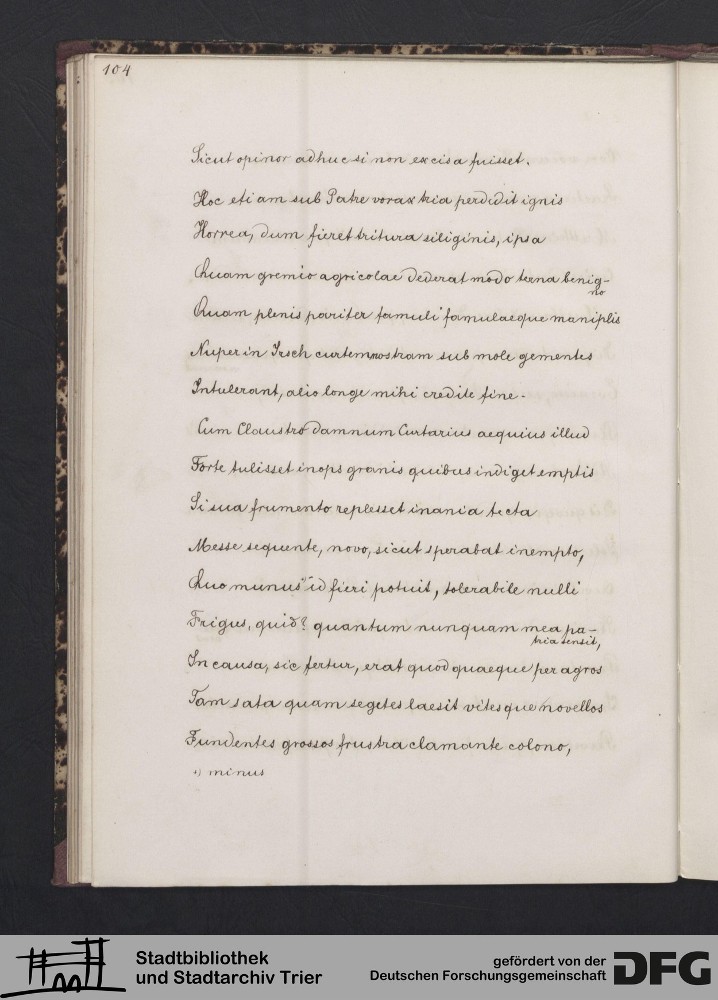 104
Sicut opinor adhuc si non excisa fuisset.
Hoc etiam sub Patre vorax tria perdidit ignis
Horrea, dum fieret tritura siliginis, ipsa
Quam gremio agricolae dederat modo terna benig-
no
Quam plenis pariter famuli famulaeque maniplis
Nuper in Irsch curtem nostram sub mole gementes
Intulerant, alio longe mihi credite fine.
Cum Claustro damnum Curtarius aequius illud
Forte tulisset inops granis quibus indiget emptis
Si sua frumento replesset inania tecta
Messe sequente, novo, sicut sperabat inempto,
Quo munus +) id fieri potuit, tolerabile nulli
Frigus, quid? quantum nunquam mea pa-
tria sensit,
In causa, sic fertur, erat quod quaeque per agros
Tam sata quam segetes laesit vitesque novellos
Fundentes grossos frustra clamante colono,
+) minus
Stadtbibliothek
und Stadtarchiv Trier
gefördert von der
Deutschen Forschungsgemeinschaft
DFG